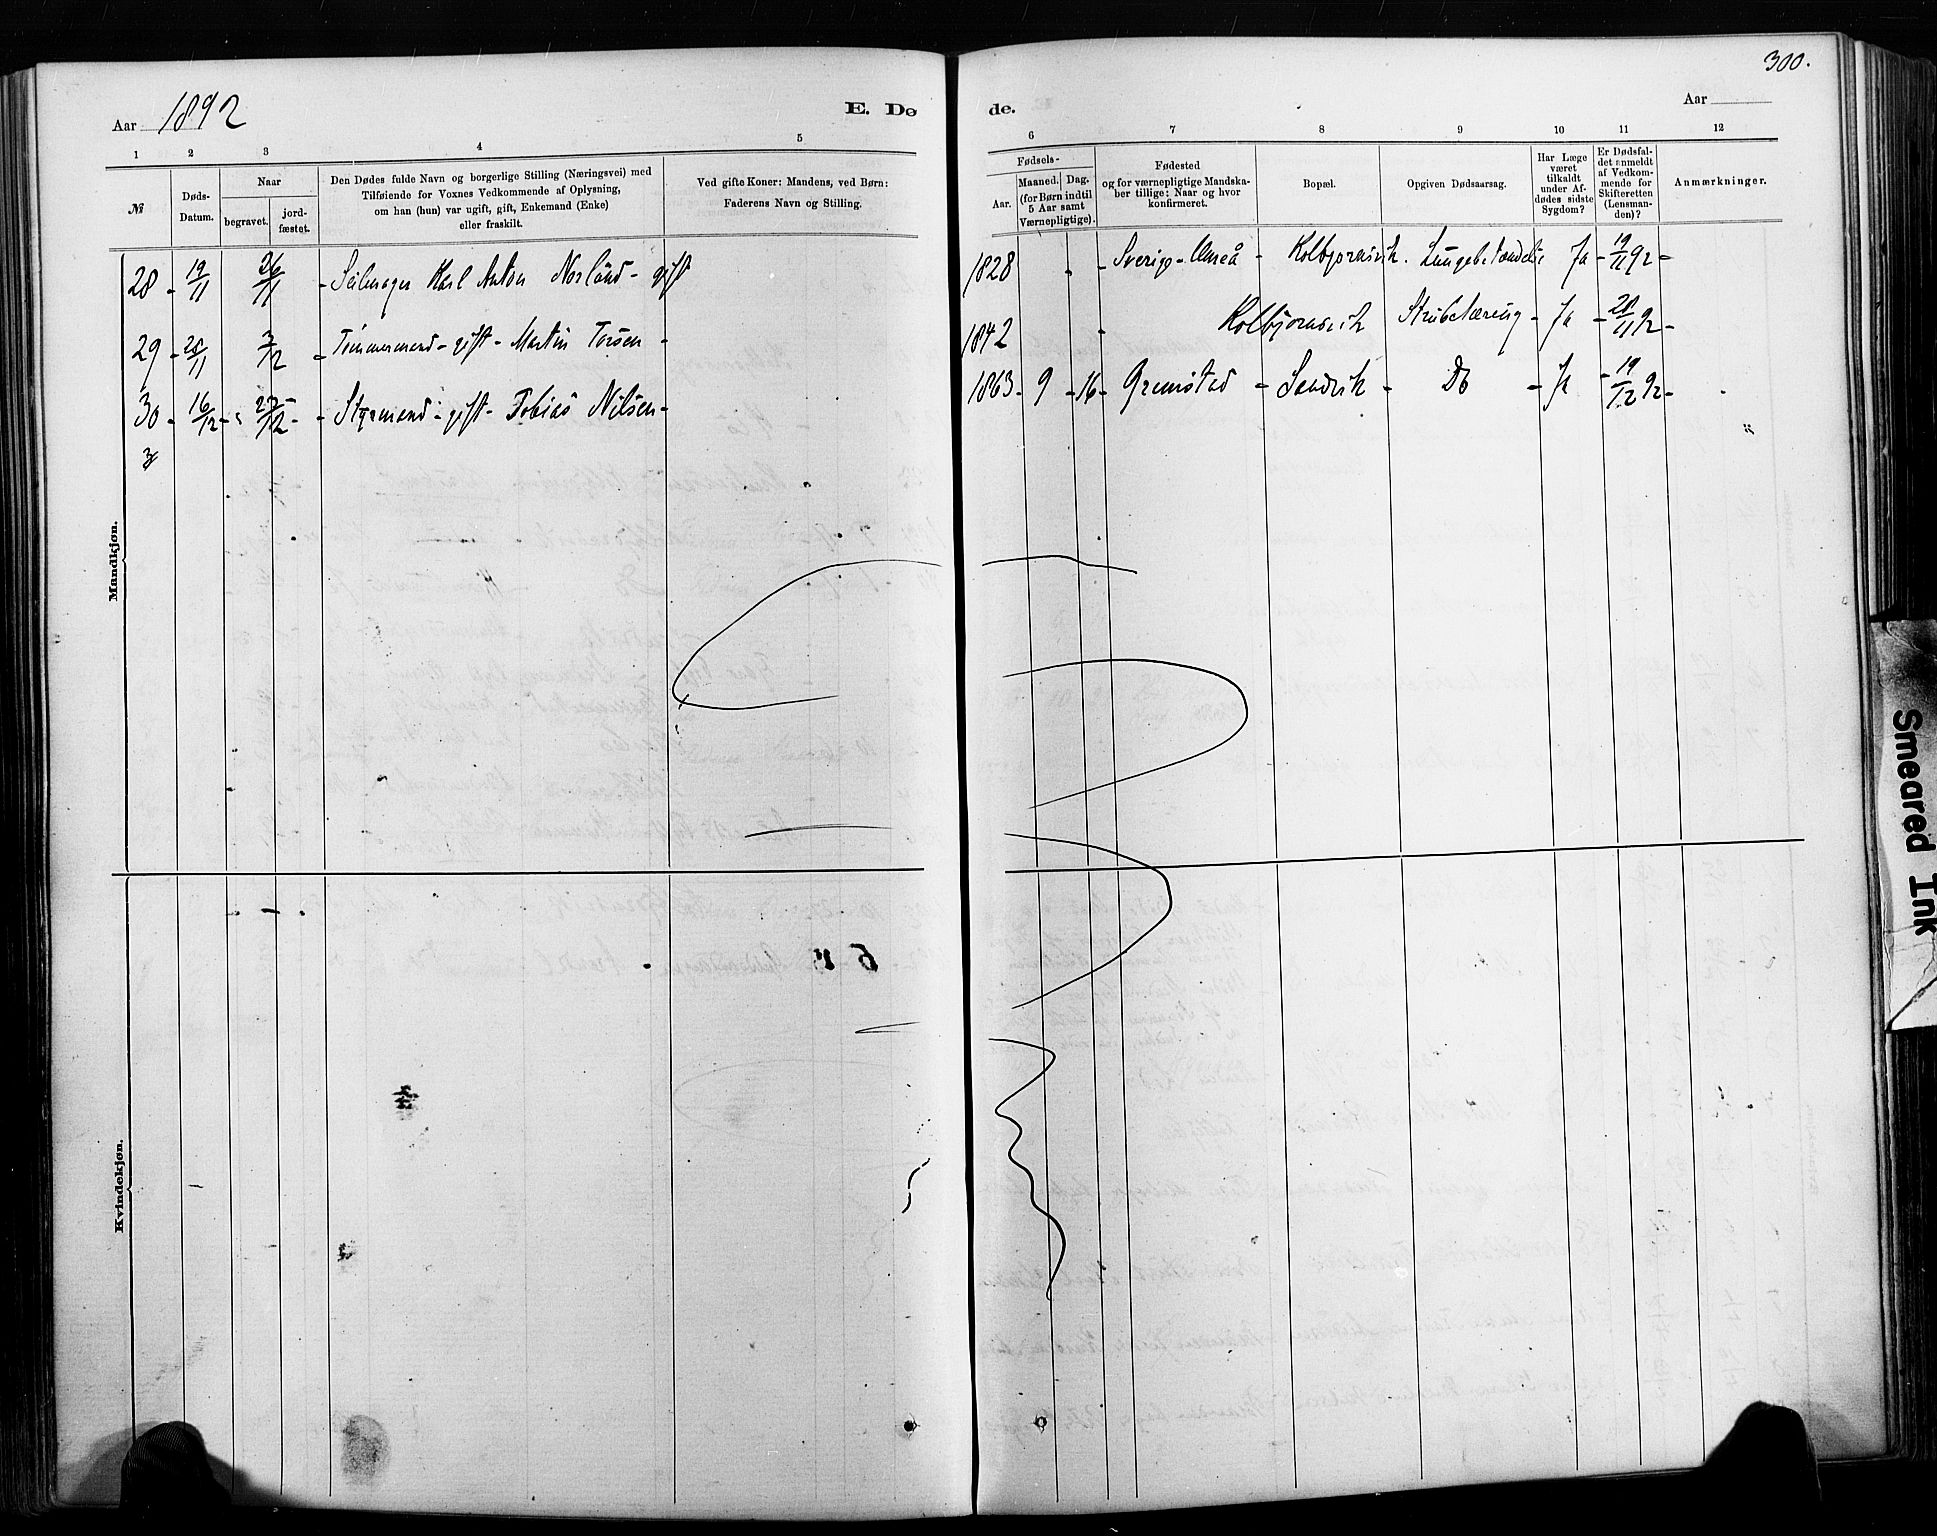 300.
Aar 1892
E. Dø
de.
Aar
1 2 3 4 5
6 7 8 9 10 11 12
№
Døds-Datum.
Naar
begravet.
jord-fæstet.
Den Dødes fulde Navn og borgerlige Stilling (Næringsvei) med
Tilføiende for Voxnes Vedkommende af Oplysning,
om han (hun) var ugift, gift, Enkemand (Enke)
eller fraskilt.
Ved gifte Koner: Mandens, ved Børn:
Faderens Navn og Stilling.
Fødsels-
Aar.
Maaned. Dag.
(for Børn indtil
5 Aar samt
Værnepligtige).
Fødested
og for værnepligtige Mandska-
ber tillige: Naar og hvor
konfirmeret.
Bopæl.
Opgiven Dødsaarsag.
Har Læge
været
tilkaldt
under Af-
dødes sidste
Sygdom?
Er Dødsfal-
det anmeldt
af Vedkom-
mende for
Skifteretten
(Lensman-
den)?
Anmærkninger.
28 - 19/11 26/11 - Seilmager Karl Anton Norlund - gift 1828 - - Sverige - Umeå - Kolbjornsvik . Lungebetændelse Ja - 19/11 92 -
29 - 28/11 3/12 - Tømmermand - gift - Martin Torsen - 1842 - Kolbjornsvik Strubetæring - Ja - 28/11 92 -
30 - 16/12 - 22/12 - Styrmand - gift - Tobias Nilsen - 1863 - 9 - 16 - Grimstad - Sandvik - Do - Ja - 19/12 92 -
3
Mandkjøn.
Kvindekjøn.
Smeared Ink